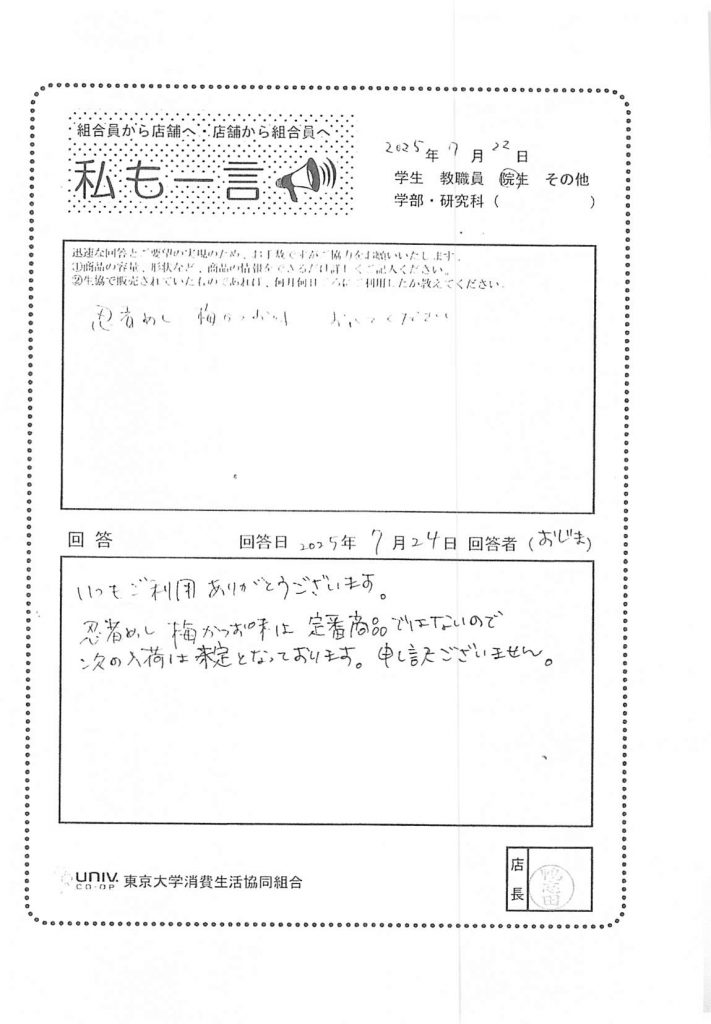 組合員から店舗へ・店舗から組合員へ
私も一言
2025年 7月 22日
学生 教職員 院生 その他
学部・研究科( )
迅速な回答とご要望の実現のため、お手数ですがご協力をお願いいたします。
①商品の容量、形状など、商品の情報をできるだけ詳しくご記入ください。
②生協で販売されていたものであれば、何月何日ごろにご利用したか教えてください。
忍者めし 梅かつお味 おいてください
回答 回答日 2025年 7月24日 回答者 (おじま)
いつもご利用ありがとうございます。
忍者めし 梅かつお味は 定番商品ではないので
次の入荷は未定となっております。申し訳ございません。
UNIV. CO-OP 東京大学消費生活協同組合
店長